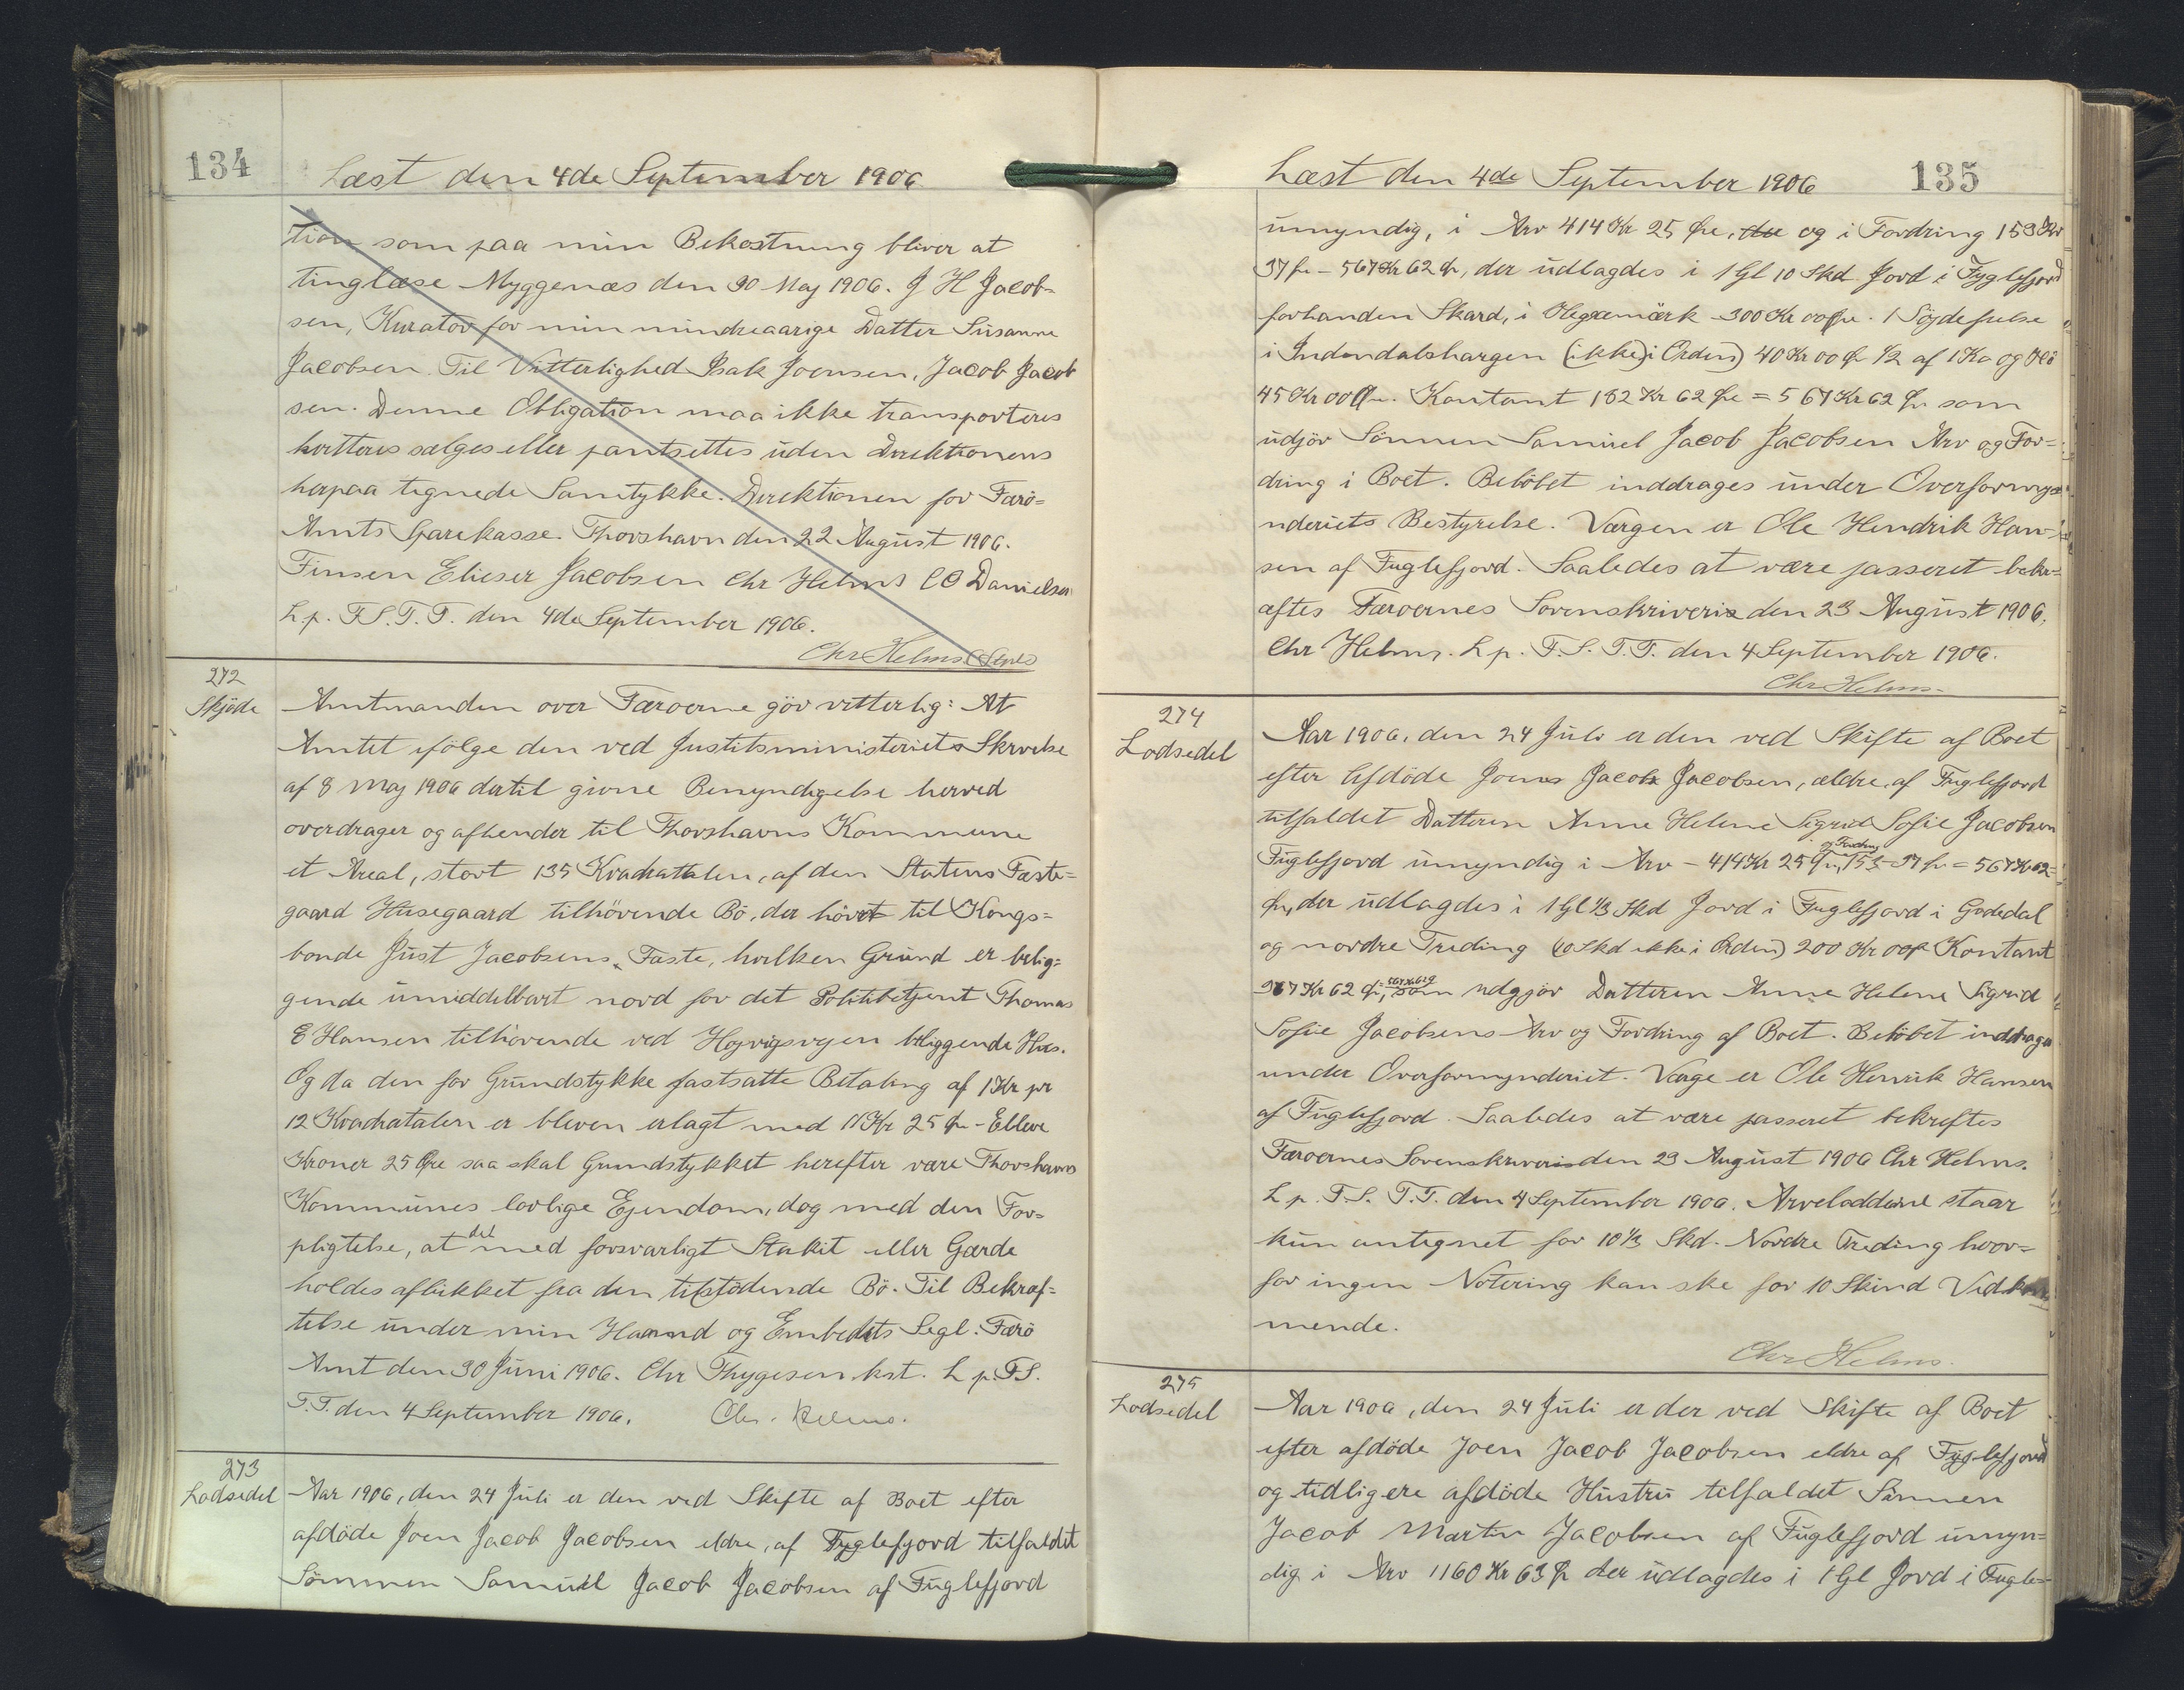 134
Læst den 4de September 1906
tion som paa min Bekostning bliver at
tinglæse Myggenæs den 30 Maj 1906. J H Jacob-
sen, Kurator for min mindreaarige Datter Susanne
Jacobsen. Til Vitterlighed Isak Joensen, Jacob Jacob
sen. Denne Obligation maa ikke transporteres
kvitteres sælges eller pantsettes uden Direktionens
herpaa tegnede Samtykke. Direktionen for Færö=
Amts Sparekasse. Thorshavn den 22 August 1906.
Finsen Elieser Jacobsen Chr Helms C O Danielsen
L. p. F. S. T. T. den 4de September 1906.
Chr Helms
272
Skjöde
Amtmanden over Færoerne gör vitterlig: At
Amtet ifölge den ved Justitsministeriets Skrivelse
af 8 Maj 1906 dertil givne Bemyndigelse herved
overdrager og afhender til Thorshavns Kommune
et Areal, stort 135 Kvadratalen, af den Statens Fæste=
gaard Husegaard tilhörende Bö, der hörer til Kongs=
bonde Just Jacobsens Fæste, hvilken Grund er belig=
gende umiddelbart nord for det Politibetjent Thomas
E Hansen tilhörende ved Hojvigsvejen beliggende Hus.
Og da den for Grundstykke fastsatte Betaling af 1 Kr pr
12 Kvadratalen er bleven erlagt med 11 Kr 25 Øre - Elleve
Kroner 25 Øre saa skal Grundstykket herefter være Thorshavns
Kommunes lovlige Ejendom, dog med den For=
pligtelse, at det med forsvarligt Stakit eller Gærde
holdes aflukket fra den tilstödende Bö. Til Bekræf=
telse under min Haand og Embedets Segl. Færö
Amt den 30 Juni 1906. Chr Thygesen kst. L p. F S.
T. T. den 4 September 1906. Chr. Helms.
273
Lodsedel
Aar 1906, den 24 Juli er den ved Skifte af Boet efter
afdöde Joen Jacob Jacobsen eldre, af Fuglefjord tilfaldet
Sönnen Samuel Jacob Jacobsen af Fuglefjord
Læst den 4de September 1906
135
umyndig, i Arv 414 Kr 25 Øre, der og i Fordring 153 Kr
37 Øre - 567 Kr 62 Ør, der udlagdes i 1 Gl 10 Skd Jord i Fuglefjord
forhanden Skard, i Hegnemärk 300 Kr 00 Øre. 1 Söjdefuelse
i Indendalshargen (ikke i Orden) 40 Kr 00 Ør 1/2 af 1 Ko og Hö
45 Kr 00 Ør. Kontant 182 Kr 62 Øre = 567 Kr 62 Ør som
udjör Sönnen Samuel Jacob Jacobsen Arv og For=
dring i Boet. Belöbet inddrages under Overformyn
nderiets Bestyrelse. Værgen er Ole Hendrik Han-
sen af Fuglefjord. Saaledes at være passeret bekr=
æftes Færoernes Sorenskriveri den 23 August 1906,
Chr Helms. L p. F. S. T. T. den 4 September 1906.
Chr Helms.
274
Lodsedel
Aar 1906, den 24 Juli er den ved Skifte af Boet
efter Afdöde Joen Jacob Jacobsen, ældre, af Fuglefjord
tilfaldet Datteren Anne Helene Sigrid Sofie Jacobsen
Fuglefjord umyndig i Arv - 414 Kr 25 Ør, og Fordring 153 - 37 Ør = 567 Kr 62=
Ør, der udlagdes i 1 Gl 1/3 Skd Jord i Fuglefjord i Godedal
og nordre Treding (10 Skd ikke i Orden) 200 Kr 00 Ør Kontant
367 Kr 62 Ør = 567 Kr 62 Ø, som udgjör Datteren Anne Helene Sigrid
Sofie Jacobsens Arv og Fordring af Boet. Belöbet inddrages
under Overformynderiet. Værge er Ole Henrik Hansen
af Fuglefjord. Saaledes at være passeret bekreftes
Færoernes Sorenskriveri den 23 August 1906 Chr Helms.
L p. F. S. T. T. den 4 September 1906. Arveladderne staar
kun antegnet for 10 1/3 Skd. Nordre Treding hvor=
for ingen Notering kan ske for 10 Skind Vedkom
mende.
Chr Helms.
275
Lodsedel
Aar 1906, den 24 Juli er der ved Skifte af Boet
efter afdöde Joen Jacob Jacobsen eldre af Fuglefjord
og tidligere afdöde Hustru tilfaldet Sönnen
Jacob Martin Jacobsen af Fuglefjord umyn=
dig i Arv 1160 Kr 63 Ør der udlagdes i 1 Gl Jord i Fugle=